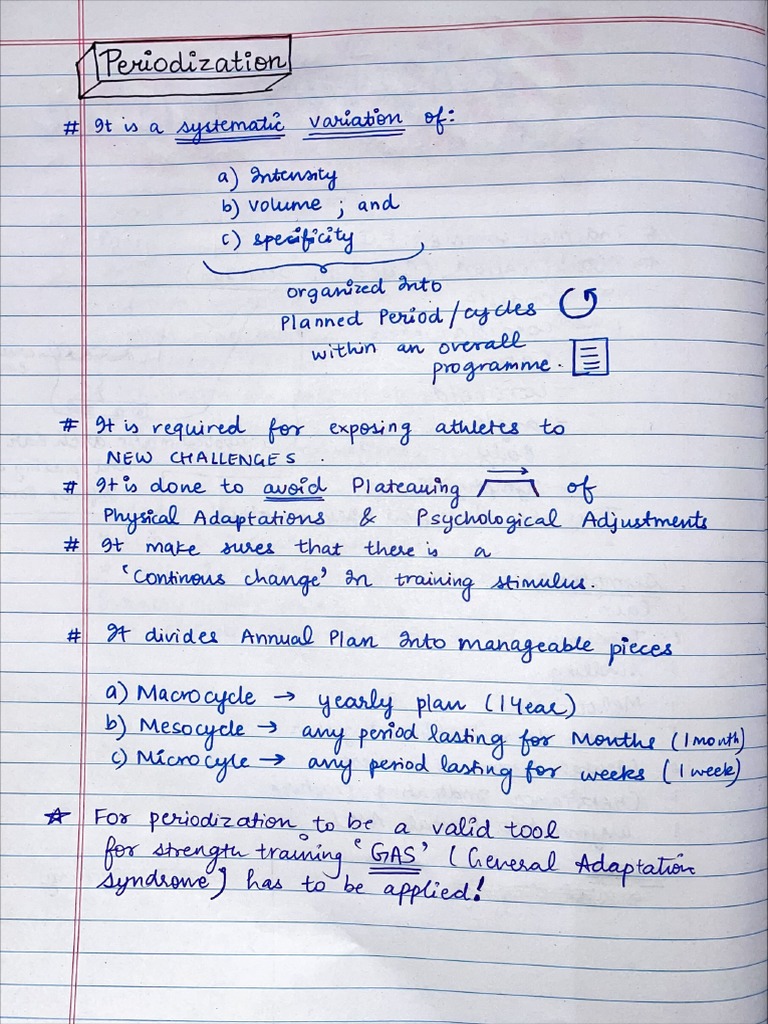 Periodization
# It is a systematic variation of:
a) Intensity
b) volume ; and
c) specificity
organized into
Planned Period/cycles
within an overall
programme.
# It is required for exposing athletes to
NEW CHALLENGES.
# It is done to avoid Plateauing of
Physical Adaptations & Psychological Adjustments
# It make sures that there is a
'Continous change' in training stimulus.
# It divides Annual Plan into manageable pieces
a) Macrocycle → yearly plan (1 Year)
b) Mesocycle → any period lasting for Months (1 month)
c) Microcycle → any period lasting for weeks (1 week)
☆ For periodization to be a valid tool
for strength training 'GAS' (General Adaptation
syndrome) has to be applied!